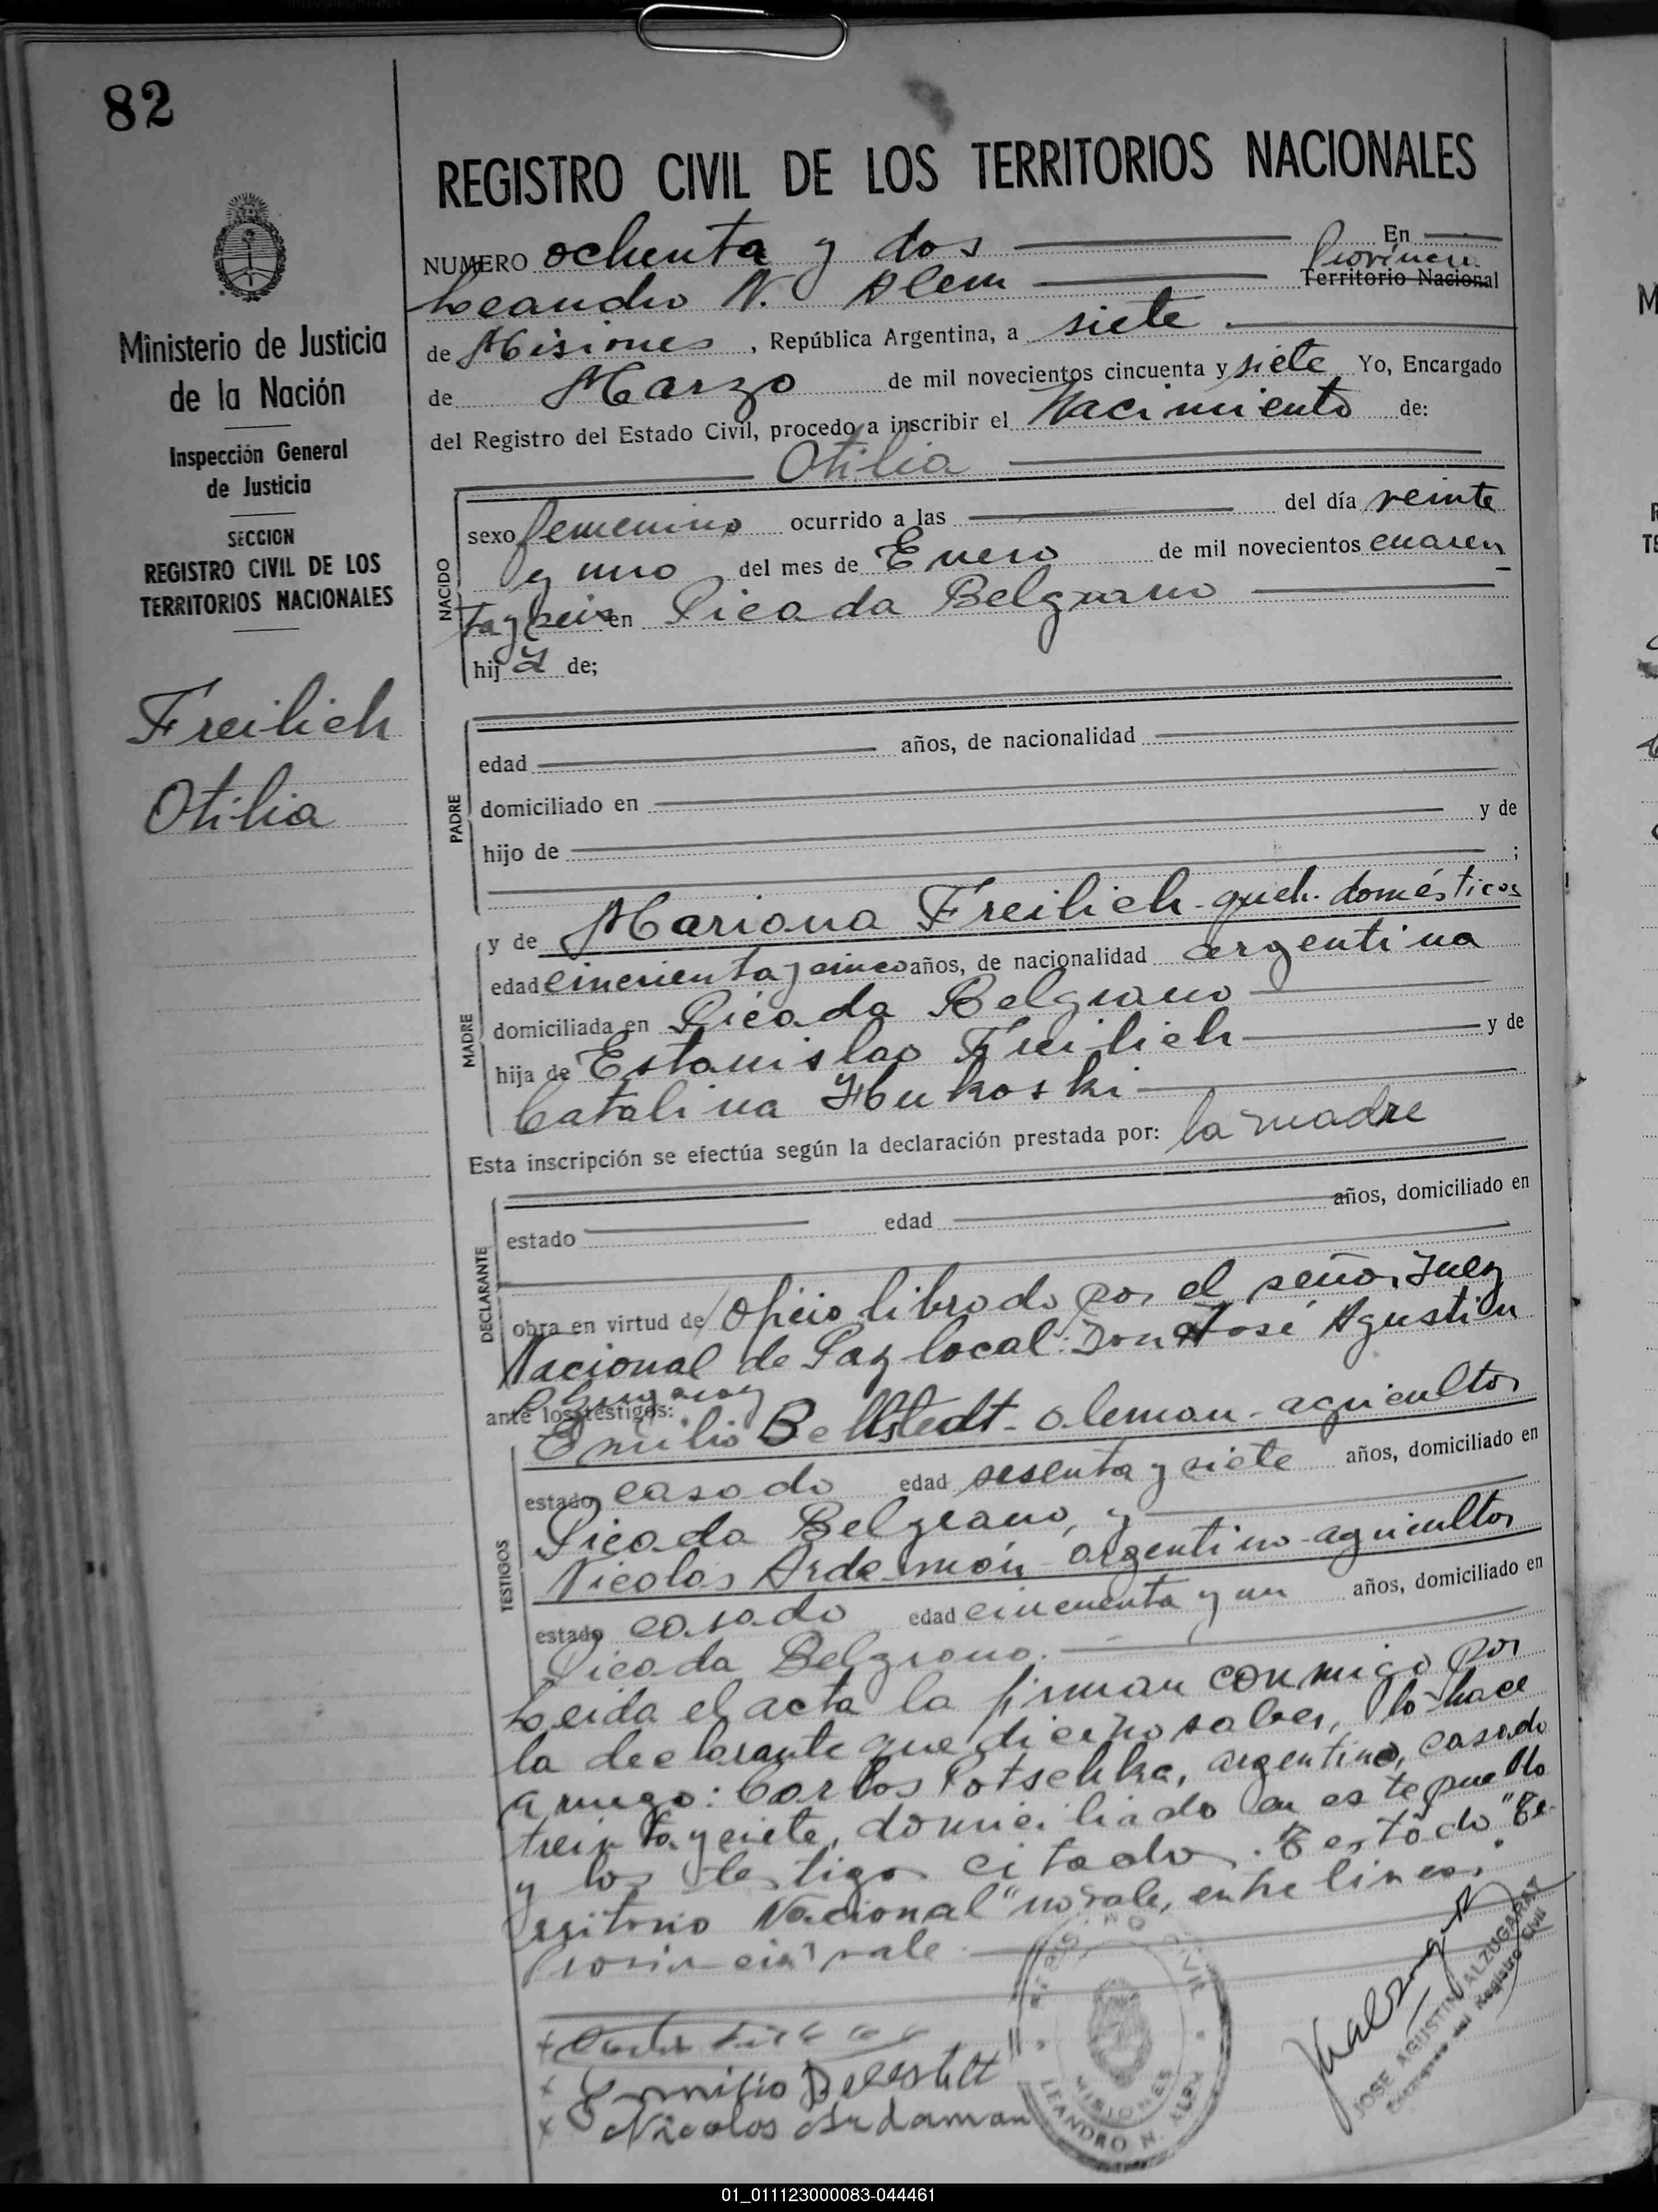 82
REGISTRO CIVIL DE LOS TERRITORIOS NACIONALES
NUMERO ochenta y dos En
Leandro N. Alem Provincia
Territorio Nacional
de Misiones, República Argentina, a siete
de Marzo de mil novecientos cincuenta y siete Yo, Encargado
del Registro del Estado Civil, procedo a inscribir el Nacimiento de:
Otilia
Ministerio de Justicia
de la Nación
Inspección General
de Justicia
SECCION
REGISTRO CIVIL DE LOS
TERRITORIOS NACIONALES
Freilich
Otilia
NACIDO
sexo femenino ocurrido a las del día veinte
y uno del mes de Enero de mil novecientos cuaren
ta y seis en Picada Belgrano
hija de;
PADRE
edad años, de nacionalidad
domiciliado en
hijo de y de
;
MADRE
y de Mariana Freilich - queh. domésticos
edad cincuenta y cinco años, de nacionalidad argentina
domiciliada en Picada Belgrano
hija de Estanislao Freilich y de
Catalina
Esta inscripción se efectúa según la declaración prestada por: la madre
DECLARANTE
estado edad años, domiciliado en
obra en virtud de Oficio librado por el señor Juez
Nacional de Paz local: Don José Agustín
Alzugaray
ante los testigos:
TESTIGOS
Emilio Bellstedt - aleman - agricultor
estado casado edad sesenta y siete años, domiciliado en
Picada Belgrano, y
Nicolás Ardamón - argentino - agricultor
estado casado edad cincuenta y un años, domiciliado en
Picada Belgrano.
Leida el acta la firman conmigo por
la declarante que dice no saber, lo hace
a ruego: Carlos Potschka, argentino, casado
treinta y siete, domiciliado en este pueblo
y los testigos citados. Testado "Te-
rritorio Nacional" no vale, entre lineas:
"Provincia" vale.
Emilio Bellstedt
Nicolos Ardaman
REGISTRO CIVIL
MISIONES
LEANDRO N. ALEM
JOSE AGUSTIN ALZUGARAY
Encargado del Registro Civil
01_011123000083-044461